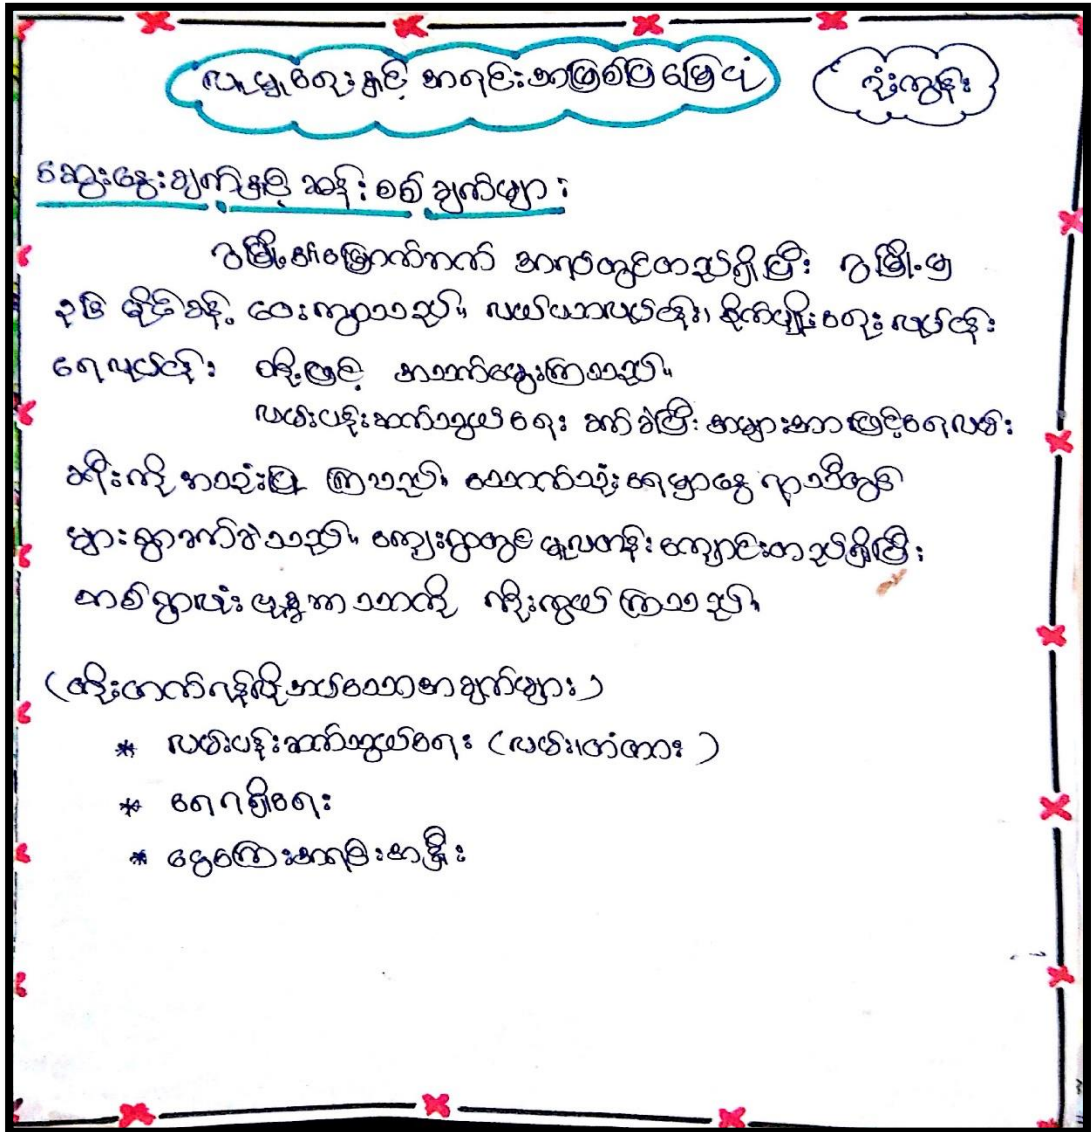 လူမှုရေးနှင့် အရင်းအမြစ်ပြမြေပုံ
ဒုံးကျွန်း
ဆွေးနွေးချက်နှင့် ဆန်းစစ်ချက်များ
ဂွမြို့၏မြောက်ဘက် အရပ်တွင်တည်ရှိပြီး ဂွမြို့မှ
၃မြို မိုင်ခန့် ဝေးကွာသည်။ လယ်ယာလုပ်ငန်း၊ စိုက်ပျိုးရေးလုပ်ငန်း
ရေလုပ်ငန်း တို့ဖြင့် အသက်မွေးကြသည်။
လမ်းပန်းဆက်သွယ်ရေး ခက်ခဲပြီး အများအားဖြင့်ရေလမ်း
ခရီးကို အသုံးပြု ကြသည်။ သောက်သုံးရေမှာနွေ ရာသီတွင်
များစွာခက်ခဲသည်။ ကျေးရွာတွင် မူလတန်းကျောင်းတည်ရှိပြီး
တစ်ရွာလုံး ဗုဒ္ဓဘာသာကို ကိုးကွယ်ကြသည်။
(တိုးတက်ရန်လိုအပ်သောအချက်များ)
* လမ်းပန်းဆက်သွယ်ရေး (လမ်း၊တံတား)
* ရေရရှိရေး
* ငွေကြေးအရင်းအနှီး